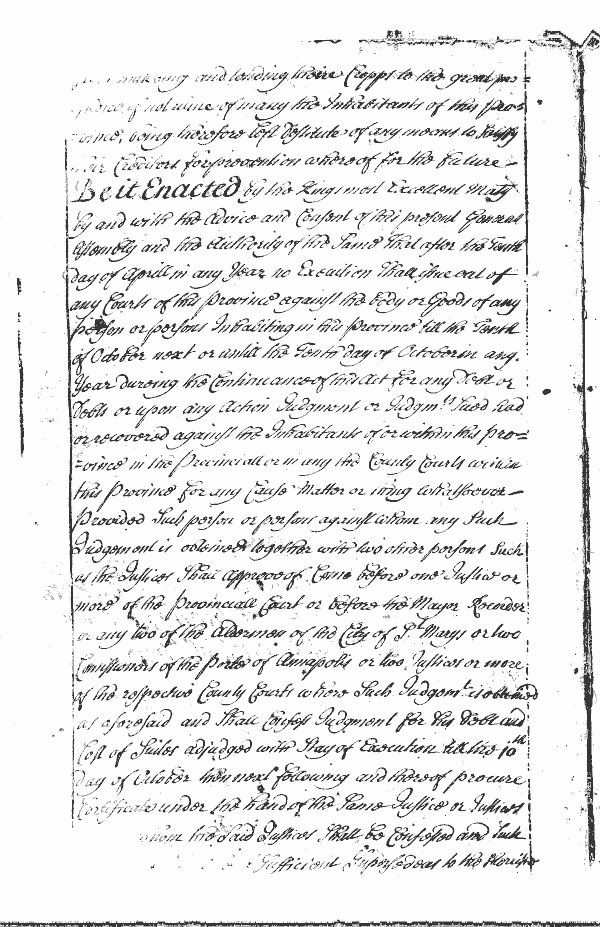 making and tending theire Cropps to the great pre=
if not ruine of many the Inhabitants of this Pro=
vince, being therefore left destitute of any means to Sattisfy
their Creditors for prevention whereof for the future
Be it Enacted by the Kings most Excellent Maty
by and with the Advice and Consent of this present Generall
Assembly and the Authority of the Same That after the Tenth
day of Aprill in any Year no Execution Shall issue out of
any Courts of this Province against the body or Goods of any
person or persons Inhabiting in this Province till the Tenth
of October next or untill the Tenth day of October in any
Year dureing the Continuance of this Act for any Debt or
Debts or upon any Action Judgment or Judgmts Sued had
or recovered against the Inhabitants of or within this Pro=
=vince in the Provinciall or in any the County Courts within
this Province for any Cause Matter or thing whatsoever
Provided Such person or persons against whom any Such
Judgement is obteined together with two other persons Such
as the Justices Shall approve of Come before one Justice or
more of the Provinciall Court or before the Mayor Recorder
or any two of the Aldermen of the City of St Marys or two
Comissioners of the Porte of Annapolis or two Justices or more
of the respective County Courts where Such Judgemt is obteined
as aforesaid and Shall Confess Judgment for this Debt and
Cost of Suites adjudged with Stay of Execution till the 10th
day of October then next following and thereof procure
Certificate under the hand of the Same Justice or Justices
whom the Said Justices Shall be Confessed and Such
Sufficient Supersedeas to the Sheriffe